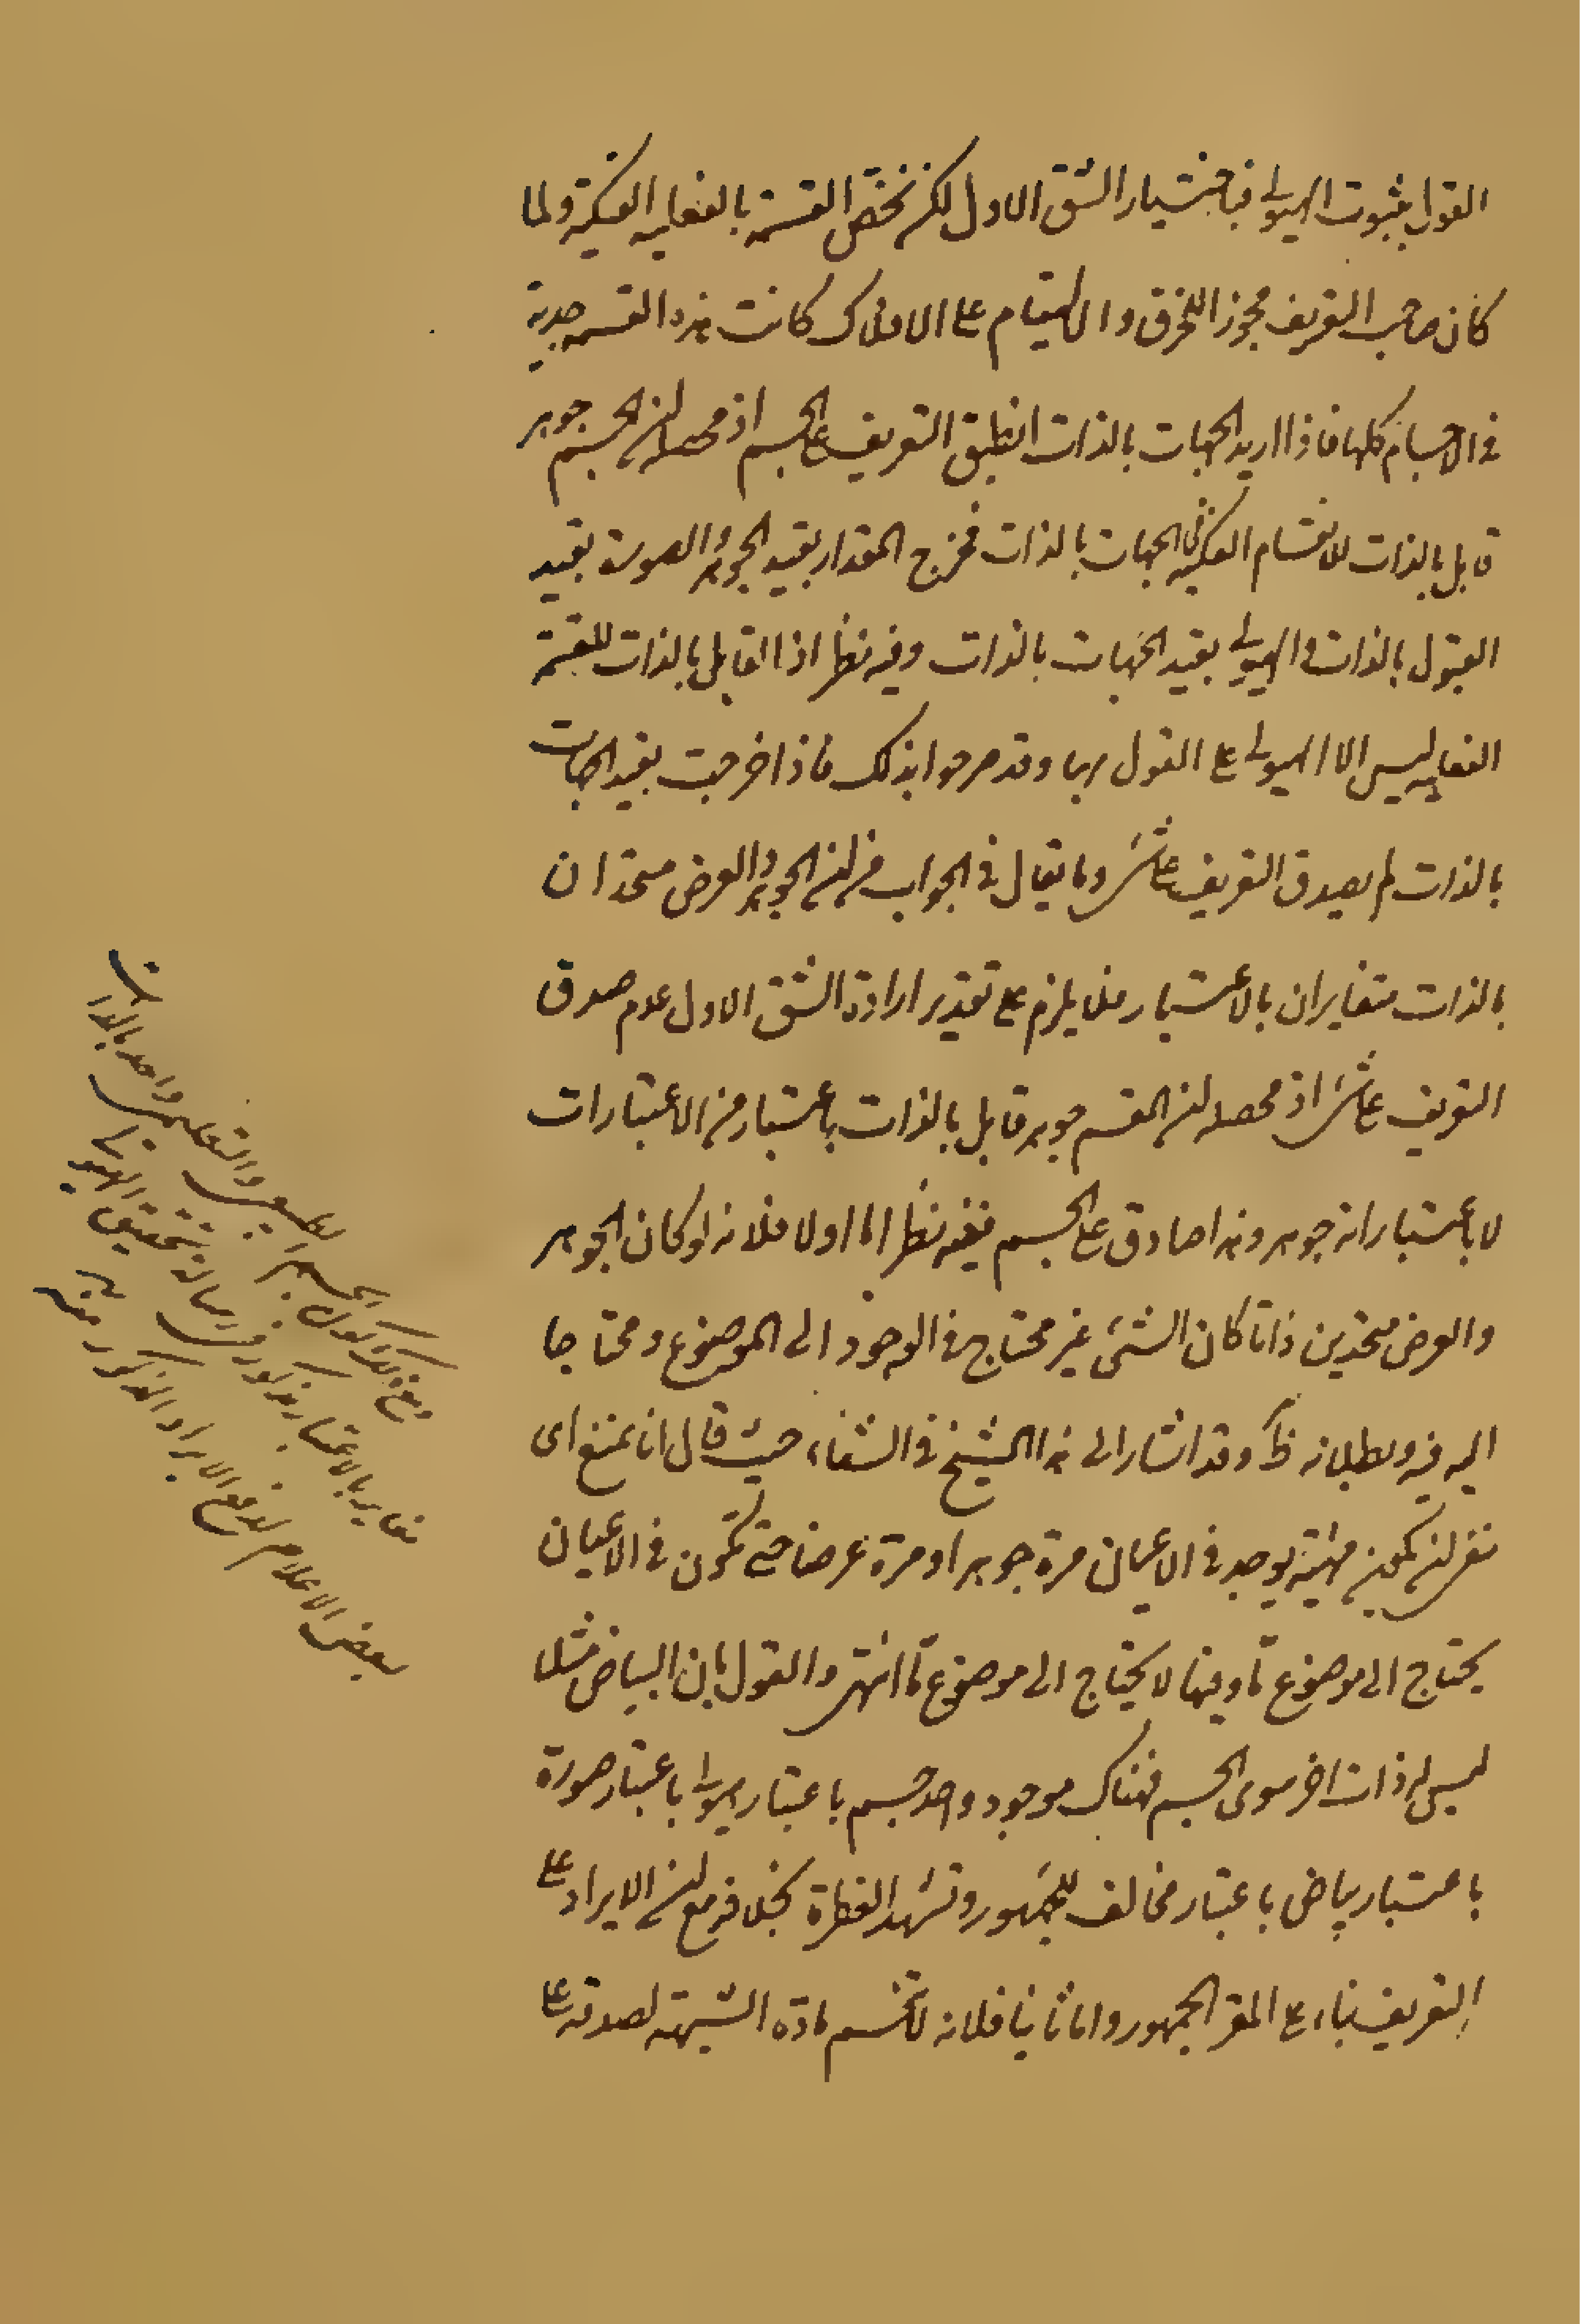 القول بثبوت الهيولى فباختيار الشق الاول لكن نخص القسمة بالفعلية الفكية ولما
كان صاحب التعريف مجوزا للخرق والالتيام على الافلاك كانت هذه القسمة جدية
فى الاجسام كلها فاذا اريد الجهات بالذات انطبق التعريف على الجسم اذ محصله ان الجسم جوهر
قابل بالذات للانقسام الفكى فى الجهات بالذات فخرج المقدار بقيد الجوهر والصورة بقيد
القبول بالذات والهيولى بقيد الجهات بالذات وفيه نظر اذ القابل بالذات للقسمة
الفعلية ليس الا الهيولى على القول بها وقد صرحوا بذلك فاذا خرجت بقيد الجهات
بالذات لم يصدق التعريف على شئ وما يقال فى الجواب من ان الجوهر والعرض متحدان
بالذات متغايران بالاعتبار فلا يلزم على تقدير ارادة الشق الاول عدم صدق
التعريف على شئ اذ محصله ان المقسم جوهر قابل بالذات باعتبار من الاعتبارات
لا باعتبار انه جوهر وهذا صادق على الجسم ففيه نظر اما اولا فلانه لو كان الجوهر
والعرض متحدين ذاتا كان الشئ غير محتاج فى الوجود الى الموضوع ومحتاجا
اليه فيه وبطلانه ظ وقد اشار الى هذا الشيخ فى الشفاء حيث قال انا نمنع اى
منع ان تكون مهية يوجد فى الاعيان مرة جوهرا ومرة عرضا حتى تكون فى الاعيان
يحتاج الى موضوع ما وفيها لا يحتاج الى موضوع ما انتهى والقول بان البياض مثلا
ليس له ذات اخر سوى الجسم فهناك موجود واحد جسم باعتبار هيولى باعتبار صورة
باعتبار بياض باعتبار مخالف للجمهور وتشهد الفطرة بخلافه مع ان الايراد على
التعريف بناء على المقر الجمهور واما ثانيا فلانه لا تنحسم مادة الشبهة لصدقه على
الطبيعى والتعليمى واحد بالذات
مغاير بالاعتبار مذكور فى رسالة تحقيق الهيولى
بعض الاعلام لدفع الايراد المذكور منه